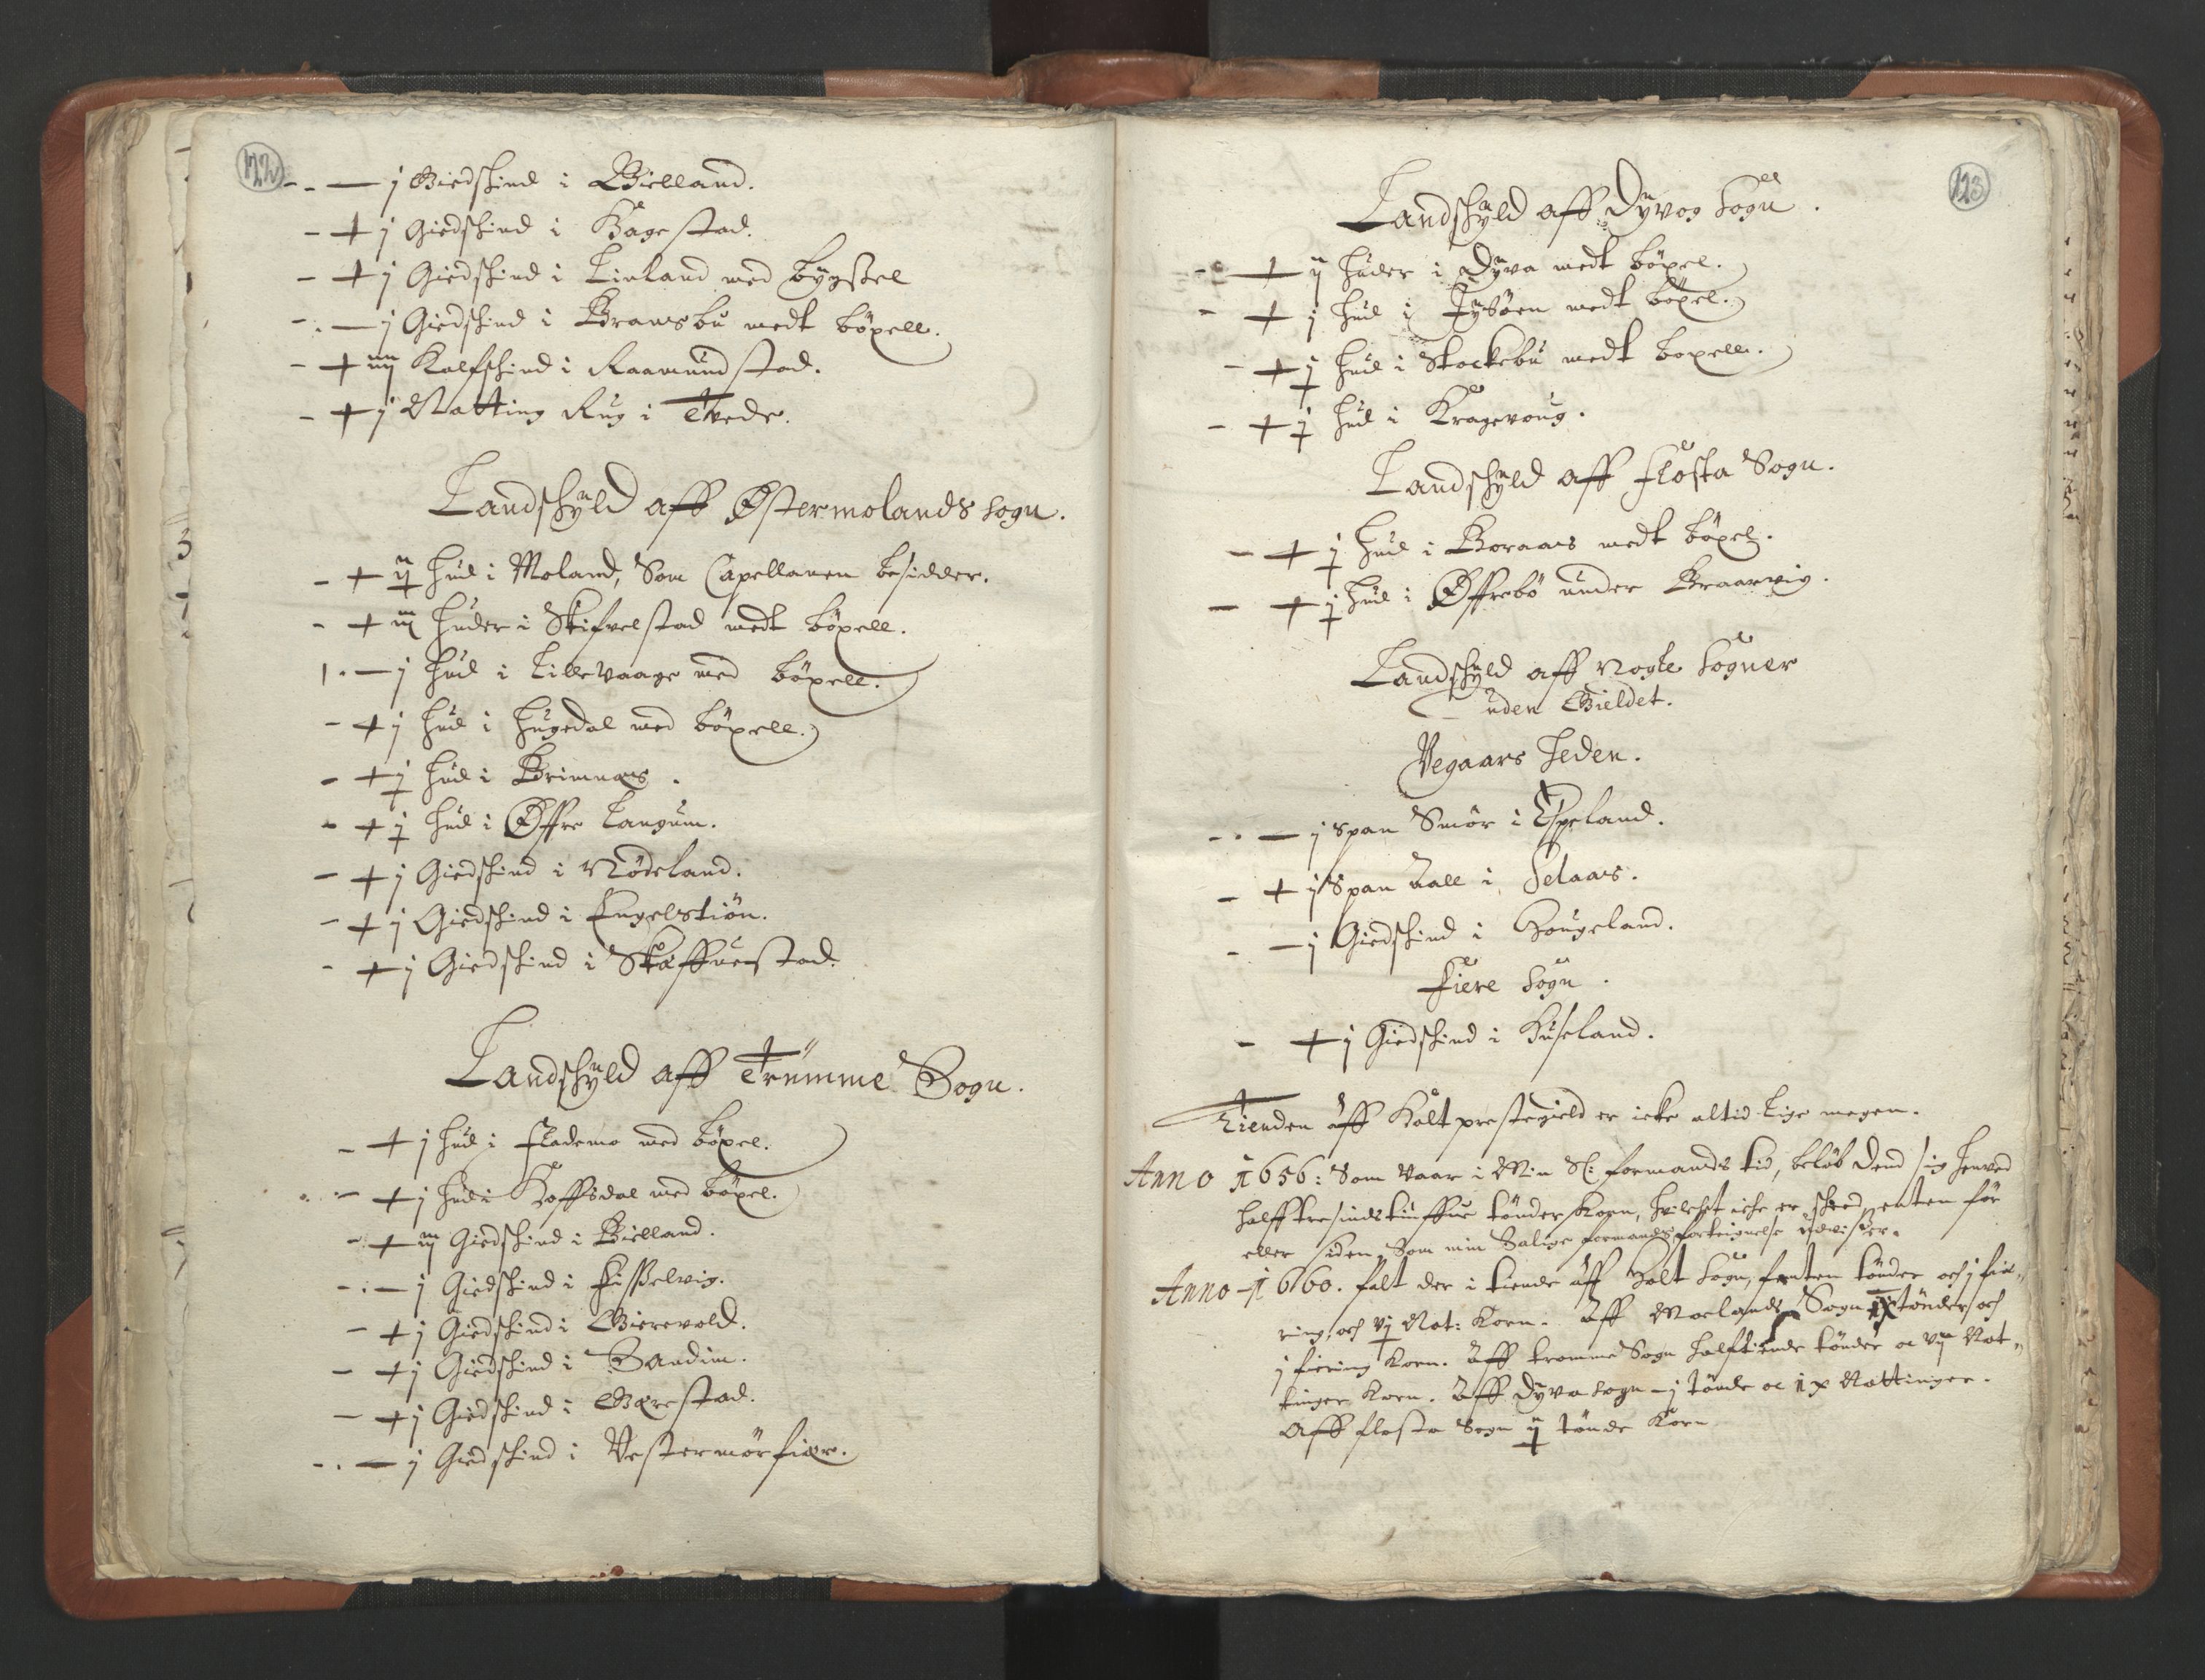 122
- . — j Giedskind i Bielland.
- + j Giedskind i Bagestad.
- + j Giedskind i Lieland med bÿgßel
- . — j Giedskind i Bransbu medt böxell.
- + iiij Kalfskind i Raamundstad.
- + j Notting Rug i Tvede.
Landskÿld aff Østermolands sogn.
- + ij hud i Moland, Som Capellanen besidder.
- + iij huder i Skifvelstad medt böxell.
1 . — j hud i Lillevaage med böxell.
- + j hud i hugedal med böxell.
- + j hud i Brimnæs.
- + j hud i Øffre Langum.
- + j Giedskind i Nödeland.
- + j Giedskind i Engelstiön.
- + j Giedskind i Skaffuestad.
Landskÿld aff Trümme Sogn.
- + j hud i Flademo med böxel.
- + j hud i Hoffsdal med böxel.
- + iij Giedskind i Bielland.
- . — j Giedskind i Fißelvig.
- + j Giedskind i Bierevold.
- + j Giedskind i Sandim.
- + j Giedskind i Bærestad.
- . — j Giedskind i Vestermörfiær.
123
Landskÿld aff Dÿvog Sogn.
- + ij huder i Dÿva medt böxel.
- + j hud i Lÿsöen medt böxel.
- + j hud i Stockebu medt boxell.
- + j hud i Kragevoug.
Landskÿld aff Flosta Sogn.
- + j hud i Boraas medt böxel.
- + j hud i Øffrebö under Braarvig.
Landskÿld aff Nogle Sogner
uden Gieldet.
Vegaars Heden.
- . — j span Smör i Espeland.
- + j Span Sall i Selaas.
- — j Giedskind i Hougeland.
Fiere Sogn.
- + j Giedskind i Huseland.
Tienden aff Holt prestegield er icke altid Lige megen.
Anno 1656: Som vaar i Min Sl: formands tid, belöb dend sig henved
halfftresindstiuffue tönder Korn, huilchet iche er skeed enten för
eller siden, Som min Salige formands forteignelse udviser.
Anno 1660. falt der i tiende aff Holt Sogn, femten tönder och j fie-
ring, och vj Not: Korn. Aff Moelands Sogn ix tönder och
j fiering Korn. Aff tromme Sogn halftiende tönder oc vij Not-
tinger Korn. Aff Dÿva sogn - j tönde oc ix Nottinger.
Aff flosta Sogn ij tönde Korn